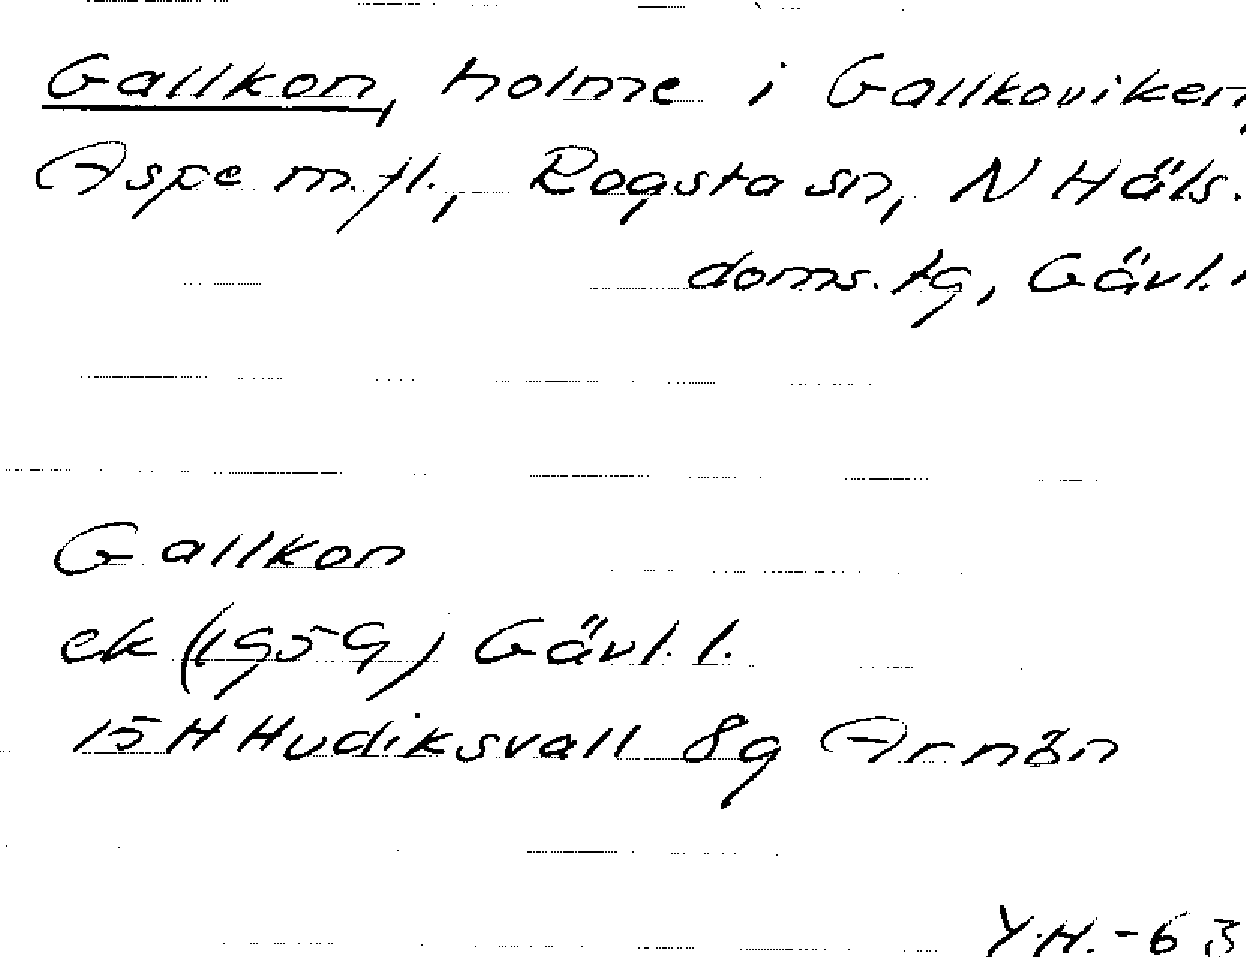 Gallkon, holme i Gallkoviken,
Aspe m.fl., Rogsta sn, N Häls.
doms.tg, Gävl.l
Gallkon
ek (1959) Gävl. l.
15 H Hudiksvall 8g Arnön
Y.H.-63